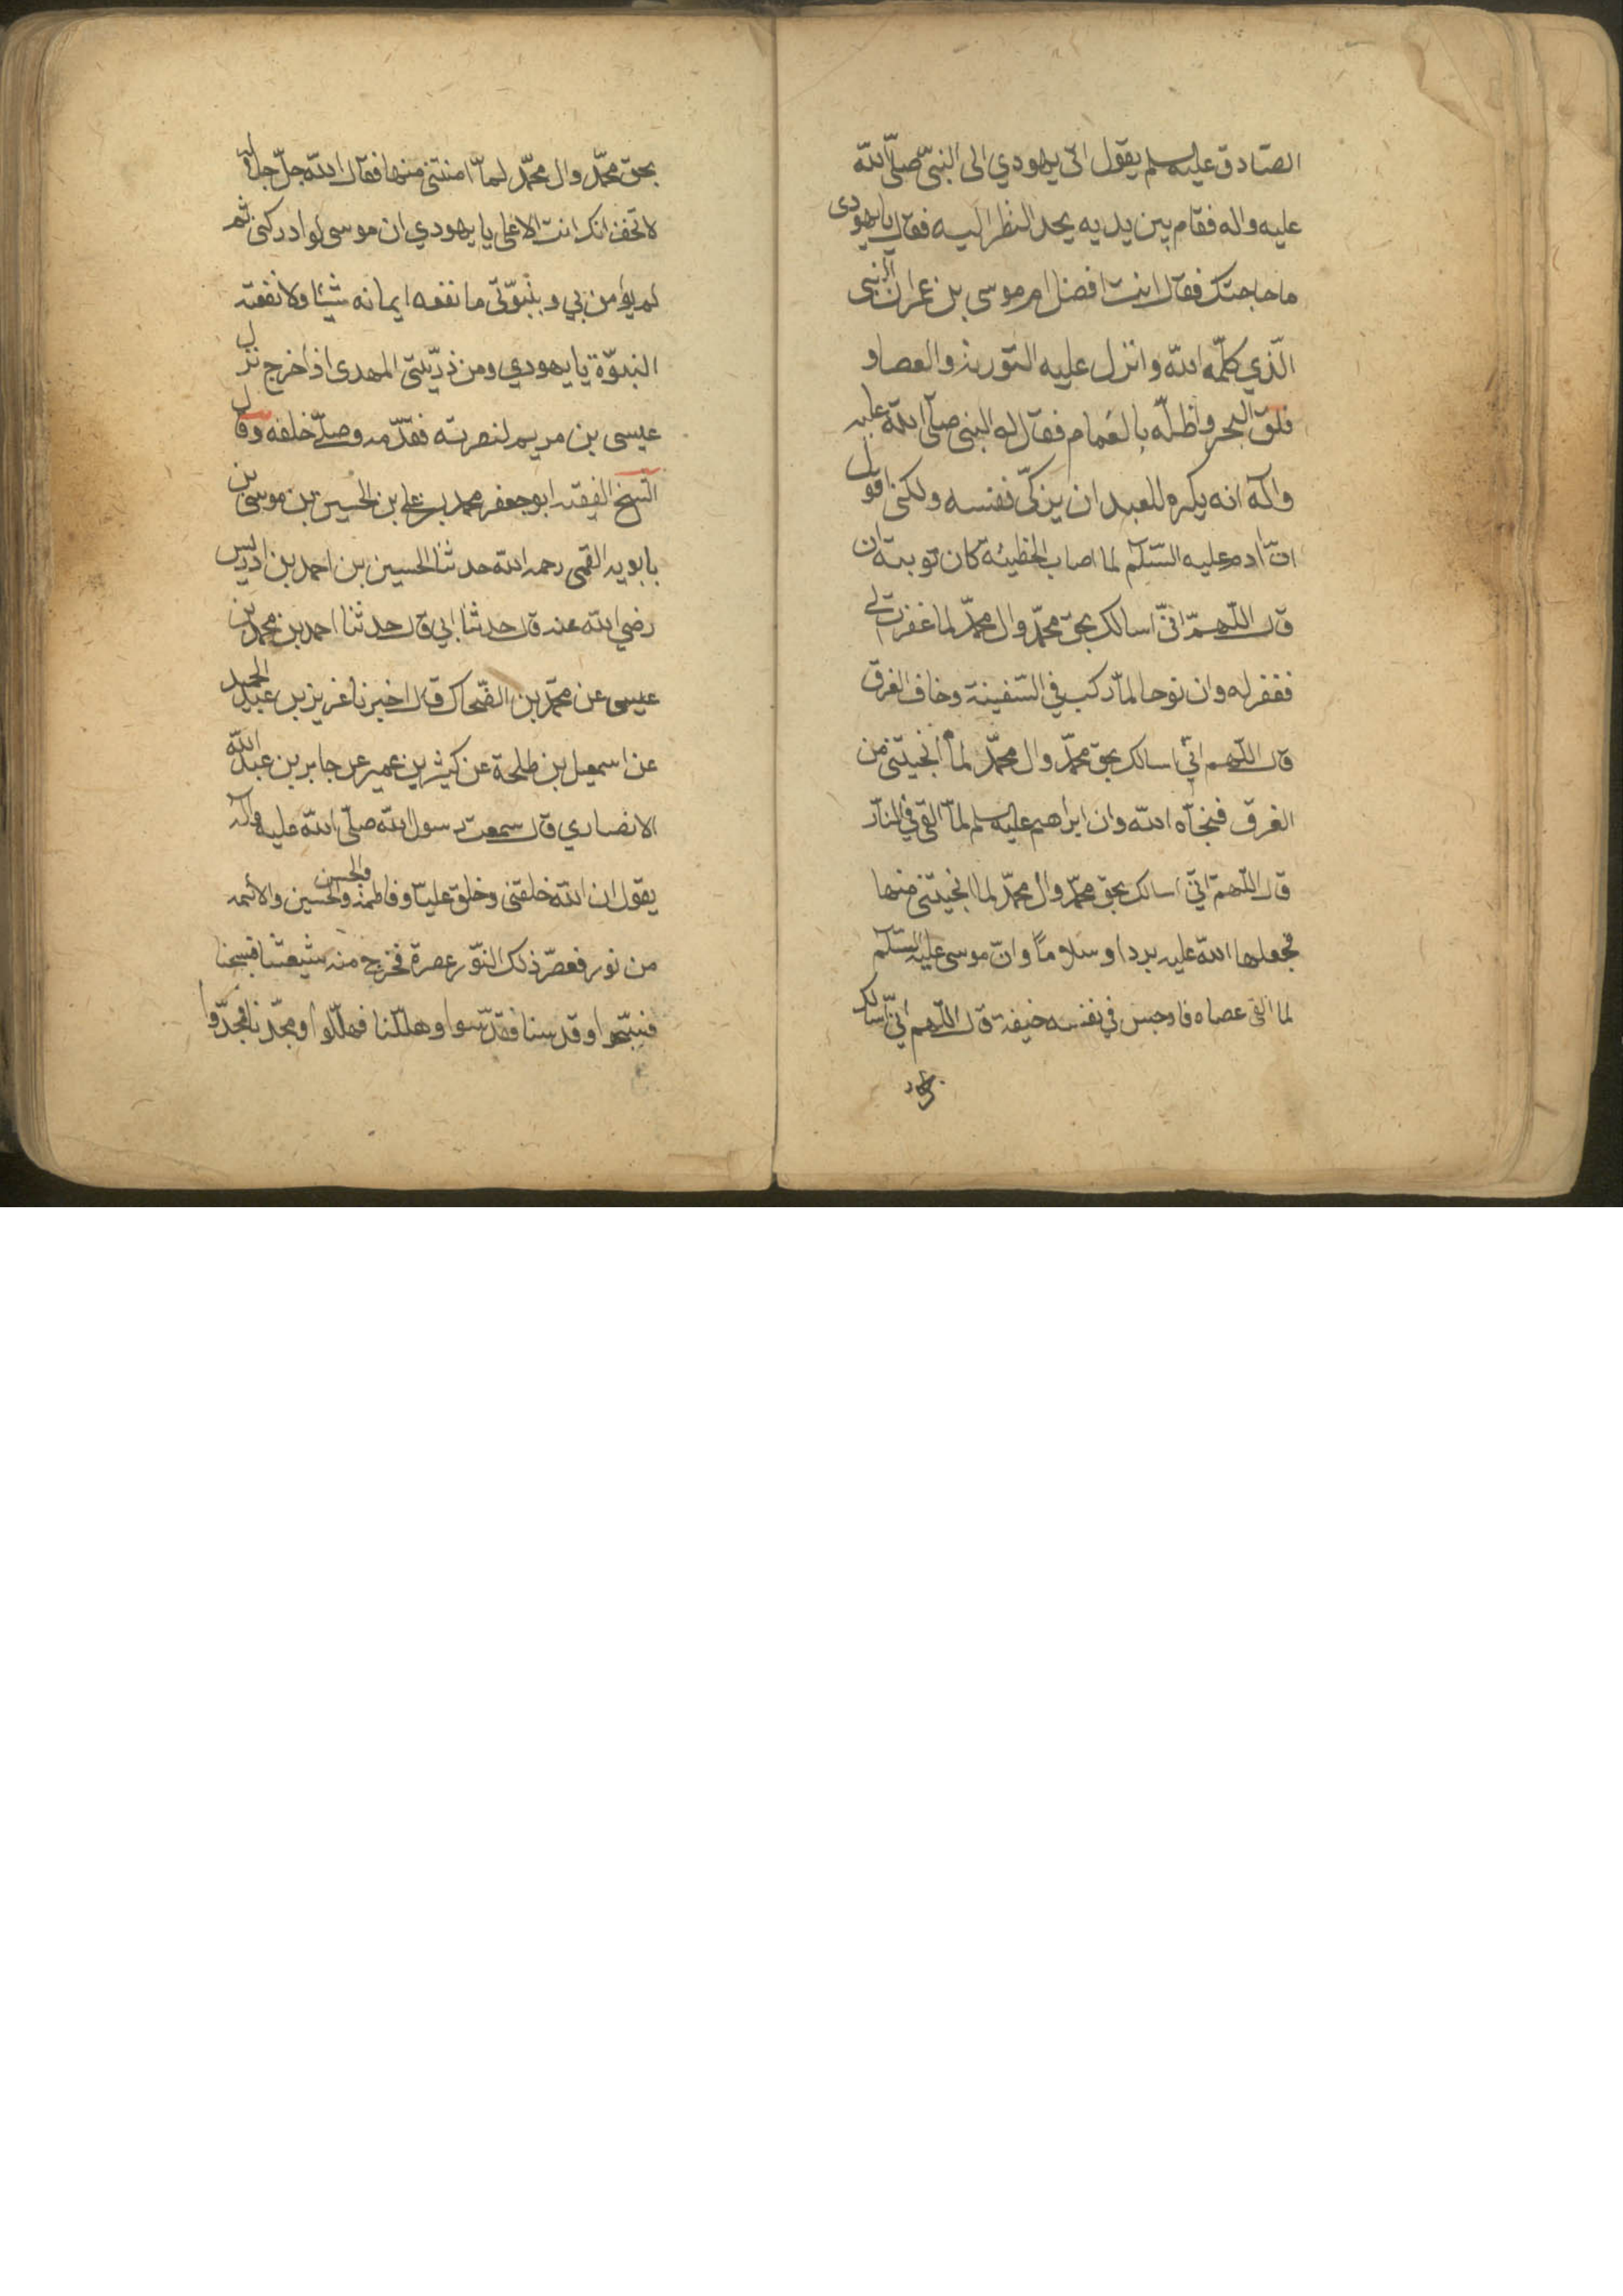 الصّادق عليه السلم يقول اتى يهودي الى النبيّ صلّى الله
عليه واله فقام بين يديه يحد النظر اليه فقال يا يهودى
ما حاجتك فقال انت افضل ام موسى بن عمران النبى
الّذي كلّمه الله وانزل عليه التورية والعصا و
فلق البحر واظلّه بالغمام فقال له النبى صلى الله عليه
واله انه يكره للعبد ان يزكّى نفسه ولكنى اقول
انّ ادم عليه السّلم لما اصاب الخطيئة كان توبته ان
قال اللّهمّ انّى اسالك بحق محمّد وال محمّد لما غفرت لى
فغفر له وان نوحا لمّا ركب في السّفينة وخاف الغرق
قال اللّهم انّي اسالك بحق محمّد وال محمّد لما انجيتنى من
الغرق فنجّاه الله وان ابراهيم عليه السلم لمّا القى في النّار
قال اللّهمّ انّي اسالك بحق محمّد وال محمّد لما انجيتنى منها
فجعلها الله عليه بردا وسلاماً وانّ موسى عليه السّلم
لما القى عصاه فاوجس في نفسه خيفة قال اللّهم انّي اسالك
بحق
بحق محمّد وال محمّد لمّا امنتنى منها فقال الله جلّ جلاله
لا تخف انك انت الاعلى يا يهودي ان موسى لو ادركنى ثم
لم يؤمن بي وبنبوّتى ما نفعه ايمانه شيئا ولا نفعته
النبوّة يا يهودي ومن ذرّيتى المهدى اذا خرج نزل
عيسى بن مريم لنصرته فقدّمه وصلّى خلفه وقال
الشيخ الفقيه ابو جعفر محمد بن على بن الحسين بن موسى بن
بابويه القمى رحمه الله حدثنا الحسين بن احمد بن ادريس
رضي الله عنه قال حدثنا ابي قال حدثنا احمد بن محمد بن
عيسى عن محمّد بن الضّحاك قال اخبرنا عزيز بن عبد الحميد
عن اسمعيل بن طلحة عن كثير بن عمير عن جابر بن عبد الله
الانصاري قال سمعت رسول الله صلّى الله عليه واله
يقول ان الله خلقنى وخلق عليّا وفاطمة والحسن والحسين والائمه
من نور فعصر ذلك النّور عصرة فخرج منه شيعتنا فسبحنا
فسبّحوا وقدسنا فقدّسوا وهلّلنا فهلّلوا ومجّدنا فمجّدوا